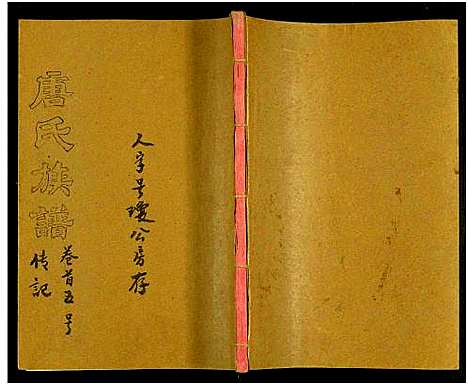 唐氏族譜
卷首五号
傳記
人字号瓊公房存